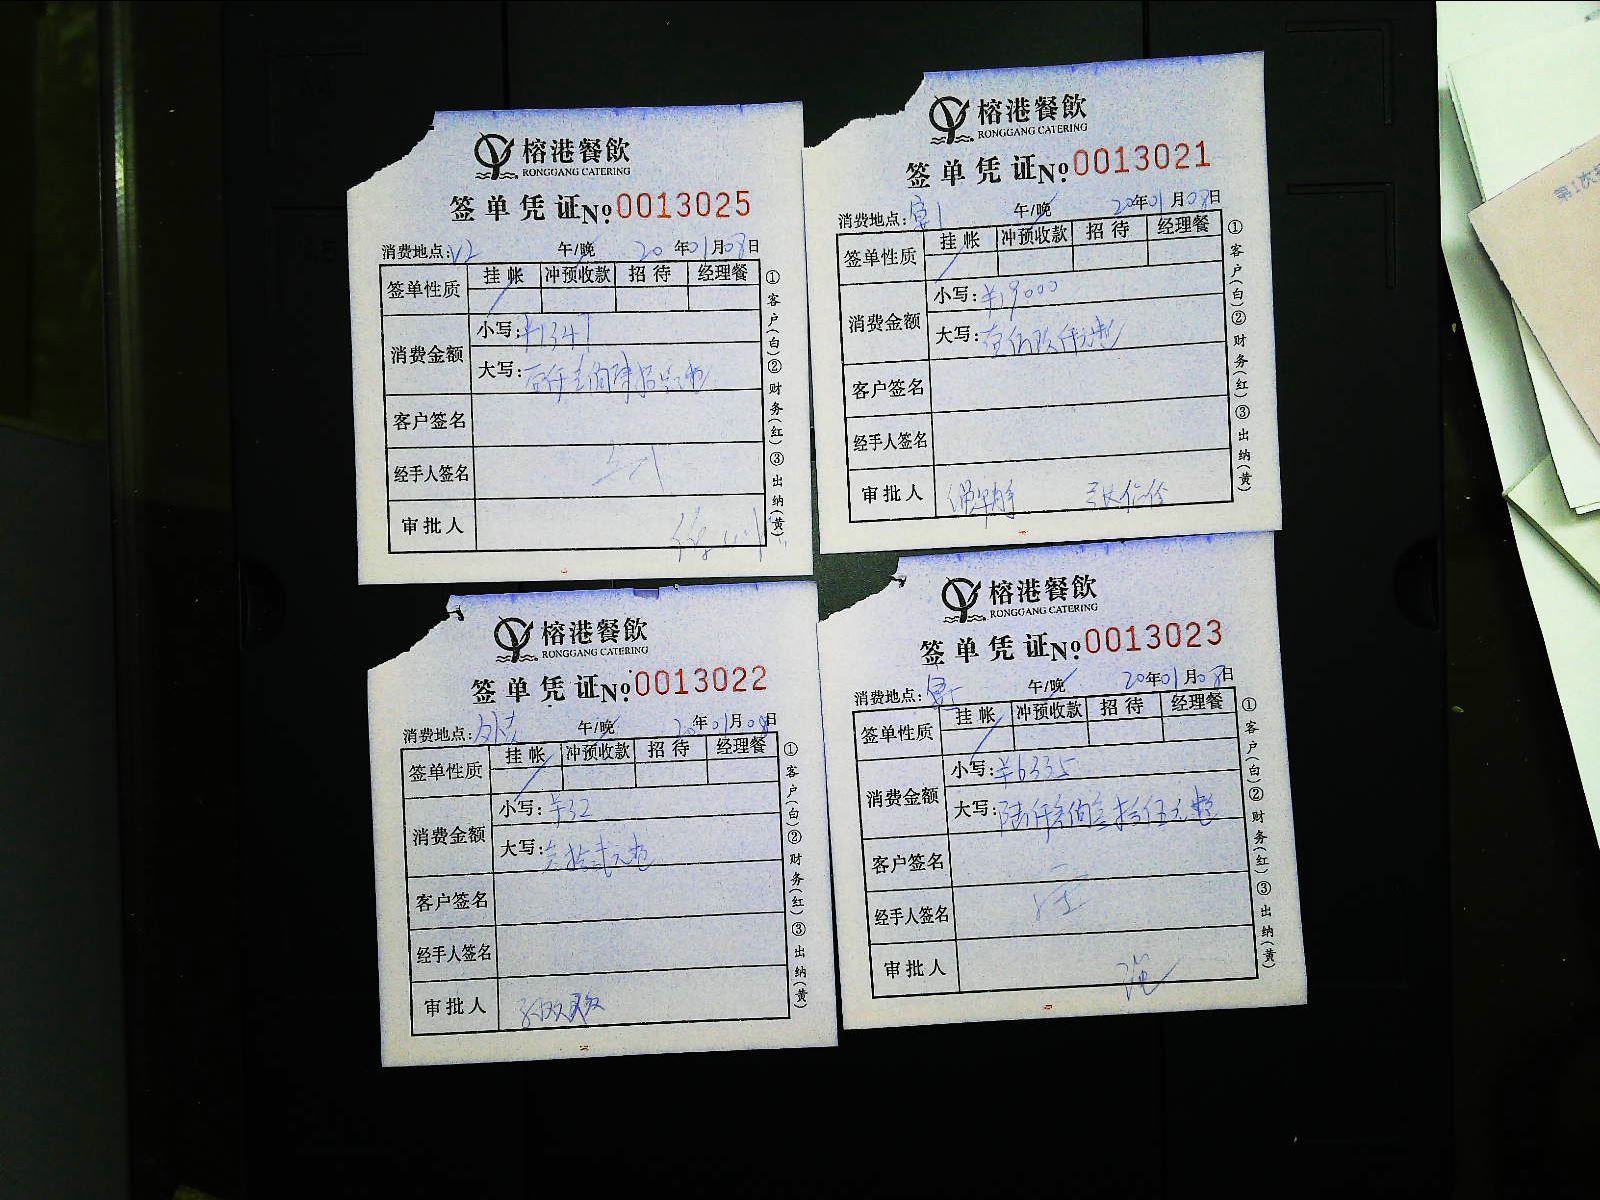 榕港餐飲
RONGGANG CATERING
签单凭证№0013025
消费地点:V2 午/晚 20年01月08日
签单性质 挂帐 冲预收款 招待 经理餐
消费金额 小写:¥1347
大写:壹仟叁佰肆拾柒元整
客户签名
经手人签名
审批人
①客户(白)②财务(红)③出纳(黄)
榕港餐飲
RONGGANG CATERING
签单凭证№0013021
消费地点:宴1 午/晚 20年01月08日
签单性质 挂帐 冲预收款 招待 经理餐
消费金额 小写:¥19000
大写:
客户签名
经手人签名
审批人
①客户(白)②财务(红)③出纳(黄)
榕港餐飲
RONGGANG CATERING
签单凭证№0013022
消费地点:外卖 午/晚 20年01月08日
签单性质 挂帐 冲预收款 招待 经理餐
消费金额 小写:¥32
大写:叁拾贰元整
客户签名
经手人签名
审批人
①客户(白)②财务(红)③出纳(黄)
榕港餐飲
RONGGANG CATERING
签单凭证№0013023
消费地点: 午/晚 20年01月08日
签单性质 挂帐 冲预收款 招待 经理餐
消费金额 小写:¥6335
大写:陆仟叁佰叁拾伍元整
客户签名
经手人签名
审批人
①客户(白)②财务(红)③出纳(黄)
第1次